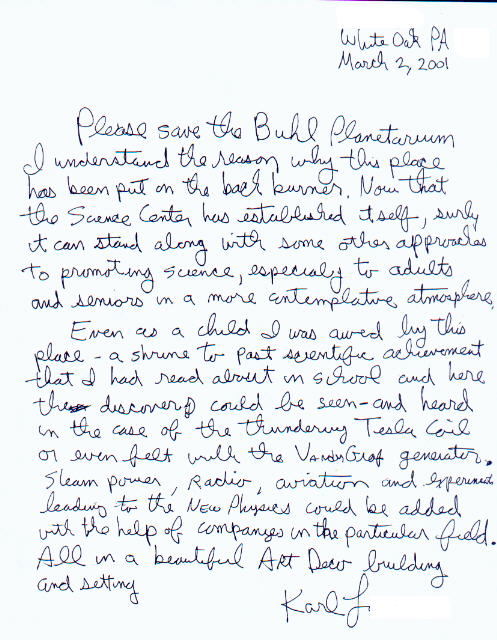 White Oak PA
March 2, 2001
Please save the Buhl Planetarium
I understand the reason why this place
has been put on the back burner. Now that
the Science Center has established itself, surly
it can stand along with some other approaches
to promoting science, especialy to adults
and seniors in a more contemplative atmosphere.
Even as a child I was awed by this
place - a shrine to past scientific achievement
that I had read about in school and here
the discovery could be seen - and heard
in the case of the thundering Tesla Coil
or even felt with the VandeGraf generator.
Steam power, Radio, aviation and experiments
leading to the New Physics could be added
with the help of companys in the particular field.
All in a beautiful Art Deco building
and setting
Karl L